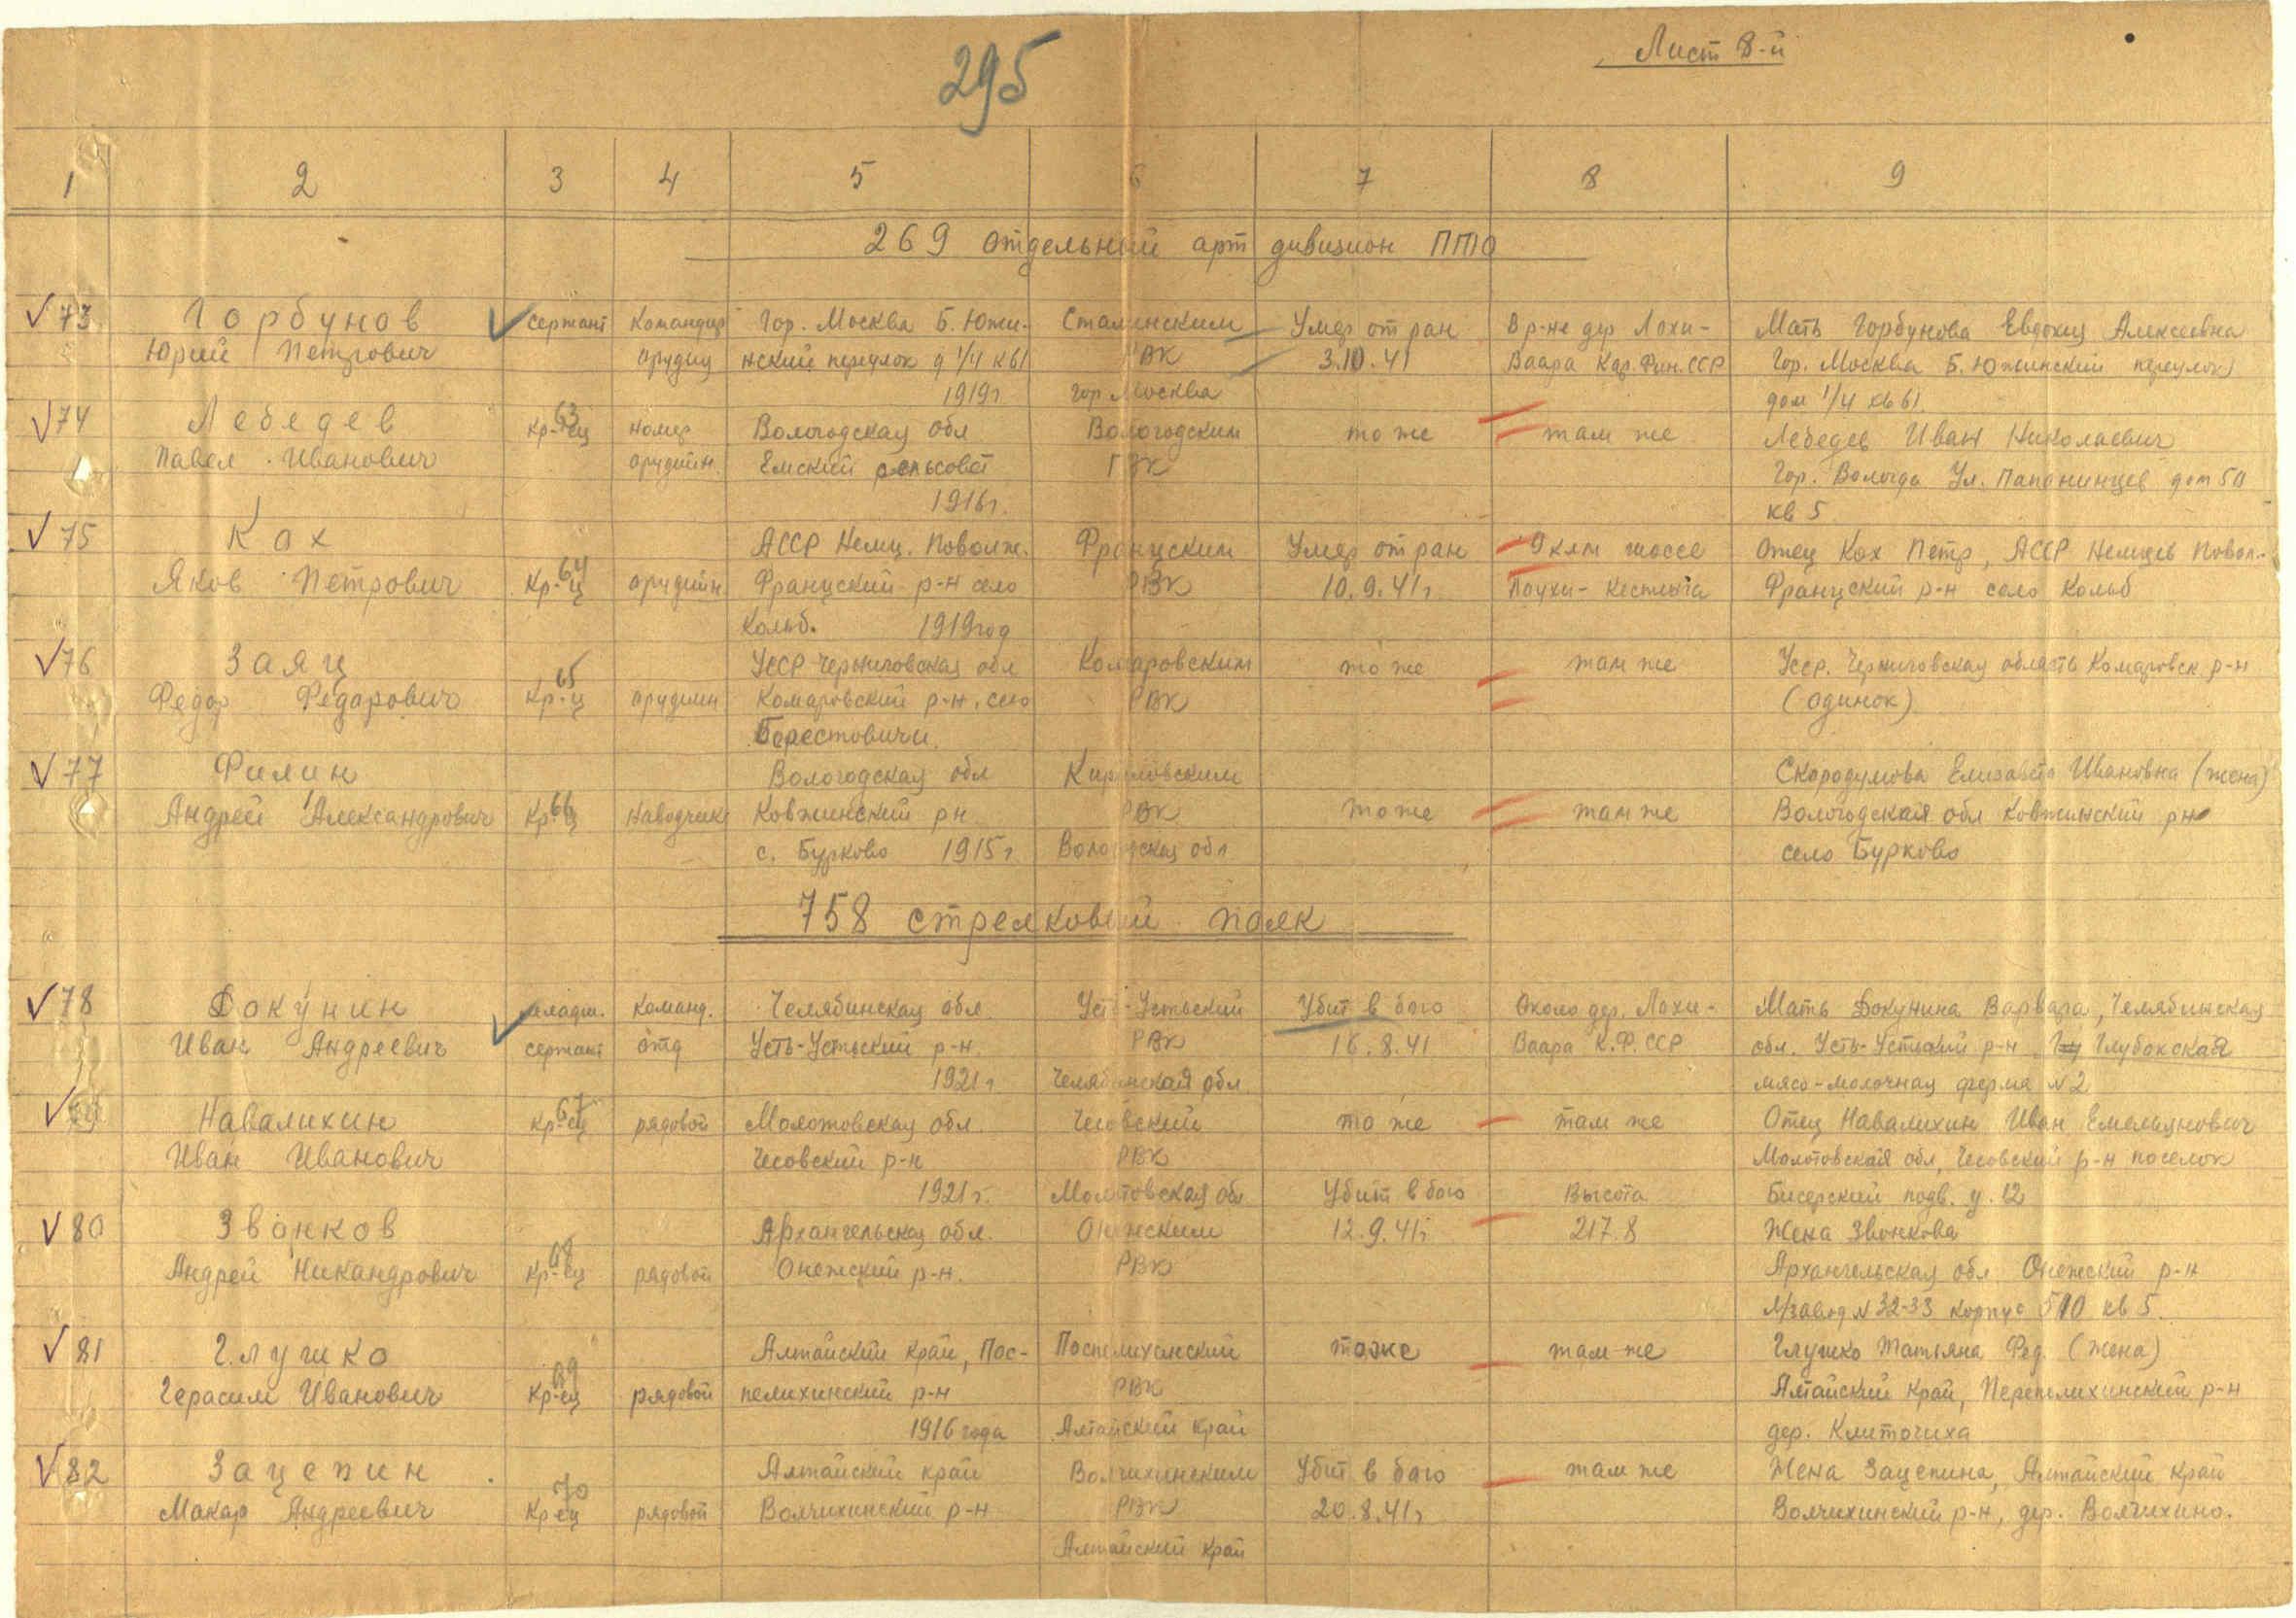 295
Лист 8-й
1 2 3 4 5 6 7 8 9
269 отдельный арт дивизион ПТО
73 Горбунов сержант Командир Гор. Москва Б. Южи- Сталинским Умер от ран В р-не дер Лохи- Мать Горбунова Евдокия Алексеевна
Юрий Петрович орудия нский переулок д 1/4 кв 61 РВК 3.10.41 Ваара Кар. Фин. ССР Гор. Москва Б. Южинский переулок
1919г гор Москва дом 1/4 кв 61.
74 Лебедев кр-ец 63 номер Вологодская обл Вологодским то же там же Лебедев Иван Николаевич
Павел Иванович орудийн. Емский сельсовет ГВК Гор. Вологда Ул. Папанинцев дом 50
1916г. кв 5
75 Кох АССР Немц. Поволж. Францским Умер от ран 9 клм шоссе Отец Кох Петр, АССР Немцев Повол.
Яков Петрович Кр-ц 64 орудийн Францский р-н село РВК 10.9.41г Лоухи-Кестеньга Францский р-н село Кольб
Кольб. 1919 год
76 Заяц УССР Черниговская обл Комаровским то же там же Усср. Черниговская область Комаровск. р-н
Федор Федарович Кр-ц 65 орудийн Комаровский р-н, село РВК (одинок)
Берестовичи.
77 Филин Вологодская обл Кириловским Скородумова Елизавета Ивановна (жена)
Андрей Александрович Кр-ц 66 Наводчик Ковжинский рн РВК то же там же Вологодская обл Ковжинский рн
с. Бурково 1915г Вологодская обл село Бурково
758 стрелковый полк
78 Докунин младш. команд. Челябинская обл Усть-Устьский Убит в бою Около дер. Лохи- Мать Докунина Варвара, Челябинская
Иван Андреевич сержант отд Усть-Устьский р-н. РВК 16.8.41 Ваара К.Ф.ССР обл. Усть-Устьский р-н Глубокская
1921г Челябинская обл. мясо-молочная ферма №2
Навалихин кр-ец 67 рядовой Молотовская обл. Чесовский то же там же Отец Навалихин Иван Емельянович
Иван Иванович Чесовский р-н РВК Молотовская обл, Чесовский р-н поселок
1921г. Молотовская обл Убит в бою Высота Бисерский подв. у. 12
80 Званков Архангельская обл. Онежским 12.9.41г 217.8 Жена Звонкова
Андрей Никандрович Кр-ец 68 рядовой Онежский р-н. РВК Архангельская обл Онежский р-н
Л/завод №32-33 корпус 510 кв 5.
81 Глушко Алтайский край, Пос- Поспелихинский тоже там же Глушко Татьяна Фед. (жена)
Герасим Иванович Кр-ец 69 рядовой пелихинский р-н РВК Алтайский край, Перепелихинский р-н
1916 года Алтайский край дер. Клиточиха
82 Зацепин Алтайский край Волчихинским Убит в бою там же Жена Зацепина, Алтайский край
Макар Андреевич Кр-ец 70 рядовой Волчихинский р-н РВК 20.8.41г Волчихинский р-н, дер. Волчихино.
Алтайский край